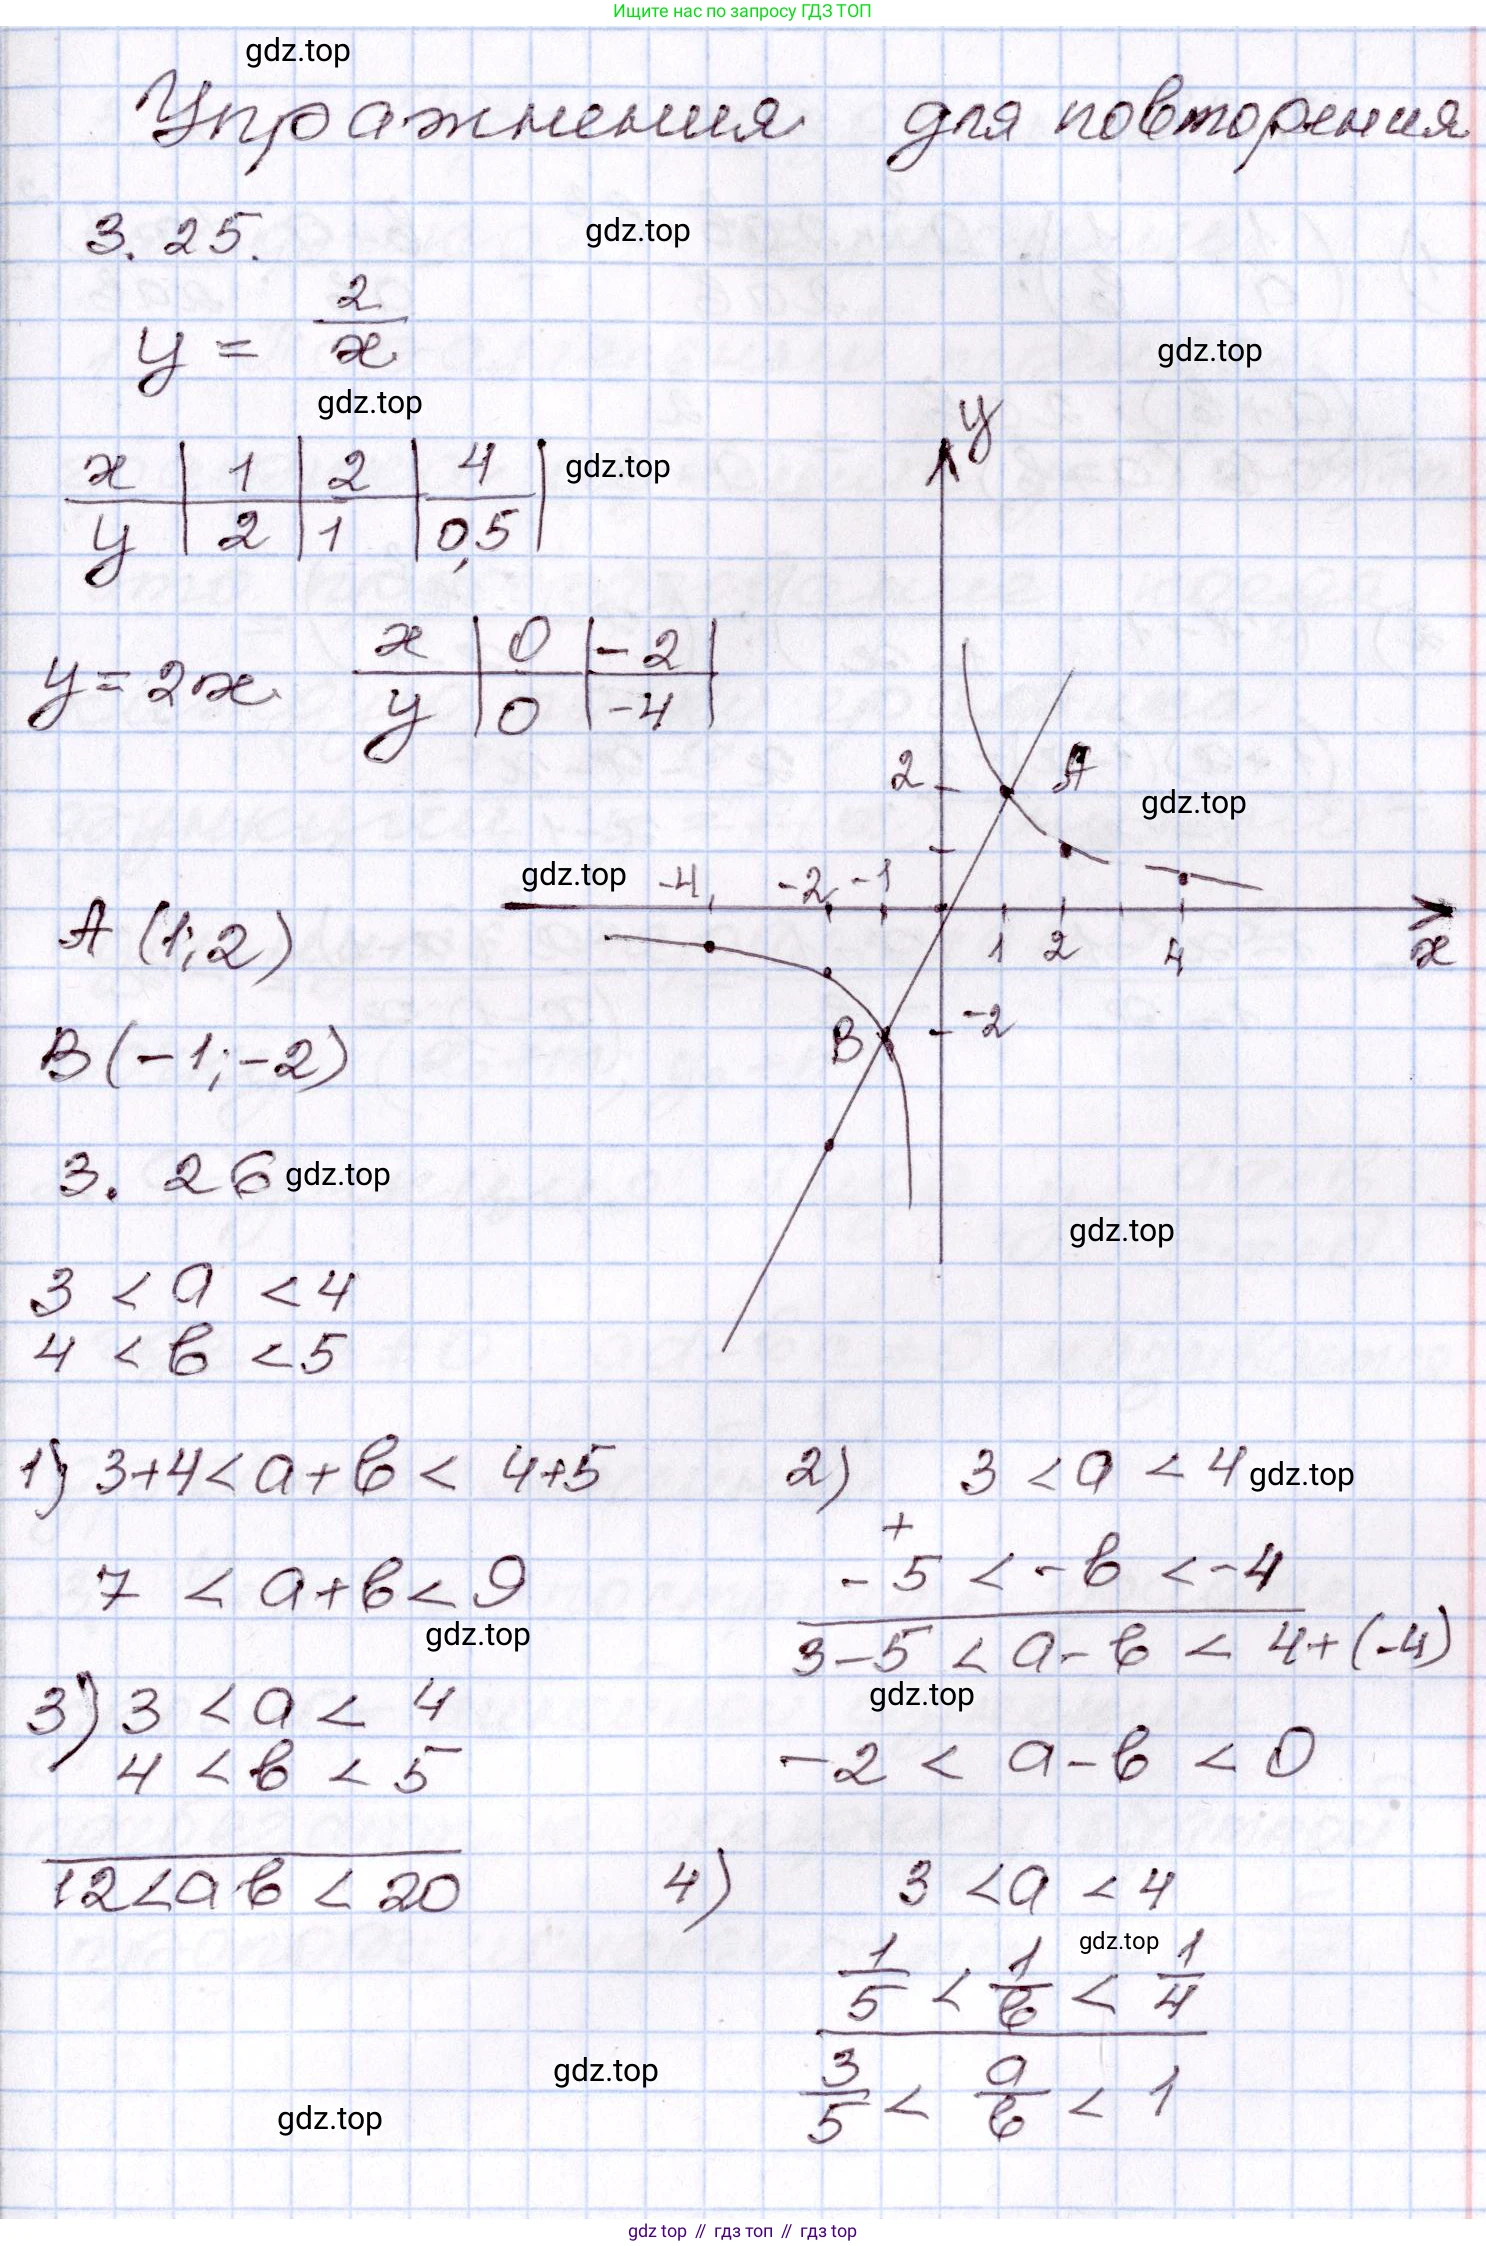 Ищите нас по запросу ГДЗ ТОП
gdz.top
Упражнения для повторения
3.25.
gdz.top
y = 2/x
gdz.top
gdz.top
y
x | 1 | 2 | 4 |
gdz.top
y | 2 | 1 | 0,5 |
y=2x
x | 0 | -2 |
y | 0 | -4 |
2
A
gdz.top
gdz.top
-4
-2
-1
1
2
4
x
A (1;2)
B
-2
B(-1;-2)
3. 26
gdz.top
gdz.top
3 < a < 4
4 < b < 5
1) 3+4 < a+b < 4+5
7 < a+b < 9
gdz.top
2) 3 < a < 4
gdz.top
+
-5 < -b < -4
3-5 < a-b < 4+(-4)
gdz.top
-2 < a-b < 0
3) 3 < a < 4
4 < b < 5
12 < ab < 20
4) 3 < a < 4
gdz.top
1/5 < 1/b < 1/4
3/5 < a/b < 1
gdz.top
gdz.top
gdz top // гдз топ // gdz top